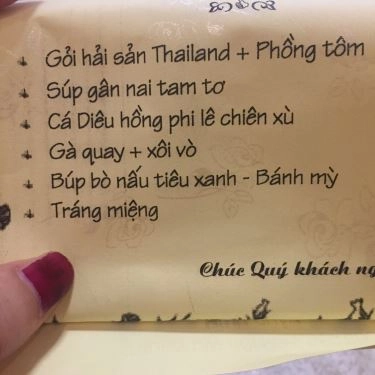 Gỏi hải sản Thailand + Phồng tôm
Súp gân nai tam tơ
Cá Diêu hồng phi lê chiên xù
Gà quay + xôi vò
Búp bò nấu tiêu xanh - Bánh mỳ
Tráng miệng
Chúc Quý khách ng